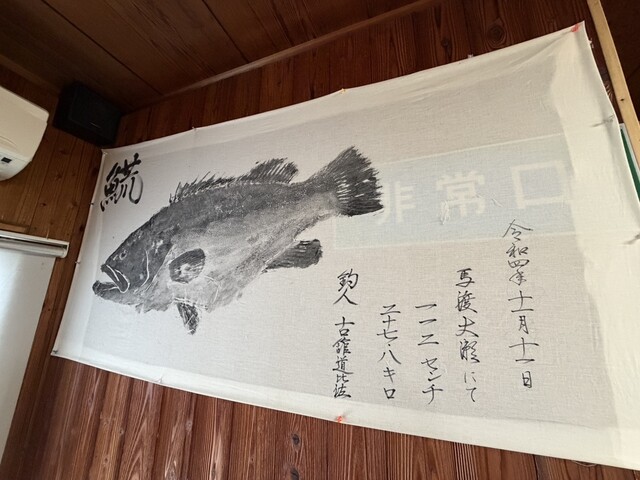 𩺊
非常口
令和四年十一月十一日
馬渡大瀬にて
一一二センチ
二十七・八キロ
釣人